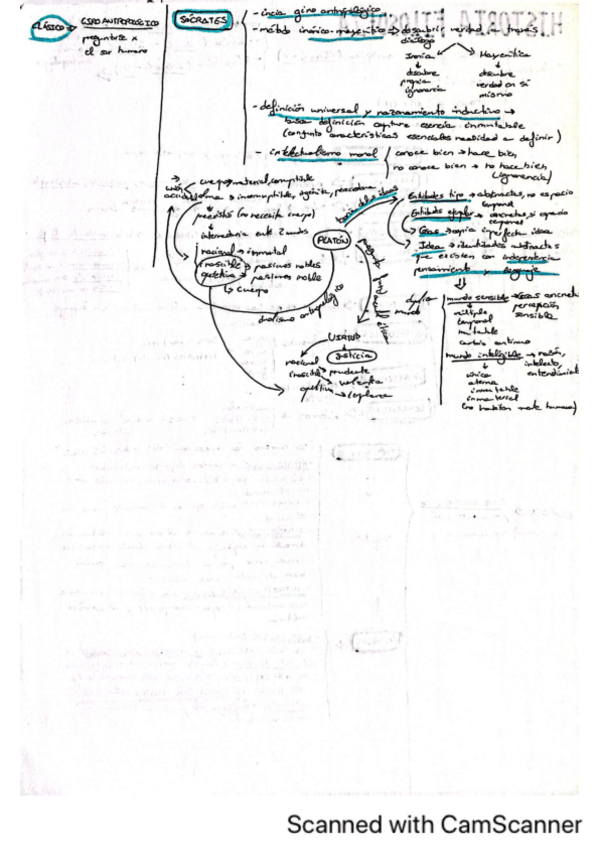 CLÁSICO
GIRO ANTROPOLÓGICO
preguntarse x
el ser humano
SÓCRATES
- inicia giro antropológico
- método irónico-mayeútico → descubrir verdad a través
diálogo
Ironía
descubre
propia
ignorancia
Mayeútica
descubre
verdad en sí
mismo
- definición universal y razonamiento inductivo →
busca definición captura esencia inmutable
(conjunto características esenciales realidad a definir)
- intelectualismo moral
conoce bien → hace bien
no conoce bien → no hace bien
(ignorancia)
unión
accidental
cuerpo → material, corruptible
alma → incorruptible,
preexiste (no necesita cuerpo)
intermedia entre 2 mundos
racional → inmortal
irascible → pasiones nobles
apetitiva → pasiones noble
cuerpo
dualismo antropológico
PLATÓN
teoría de las ideas
Entidades tipo → abstractas, no espacio
temporal
Entidades ejemplar → concretas, sí espacio
temporal
Cosas → copia imperfecta idea
Idea → identidades abstractas
que existen con independencia
pensamiento y lenguaje
mundo
mundo sensible → cosas concretas
percepción
sensible
múltiple
temporal
mutable
cambio continuo
mundo inteligible → razón,
intelecto,
entendimiento
única
eterna
inmutable
inmaterial
VIRTUD
justicia
racional
irascible → prudente
apetitiva → valiente
→ templanza
Scanned with CamScanner